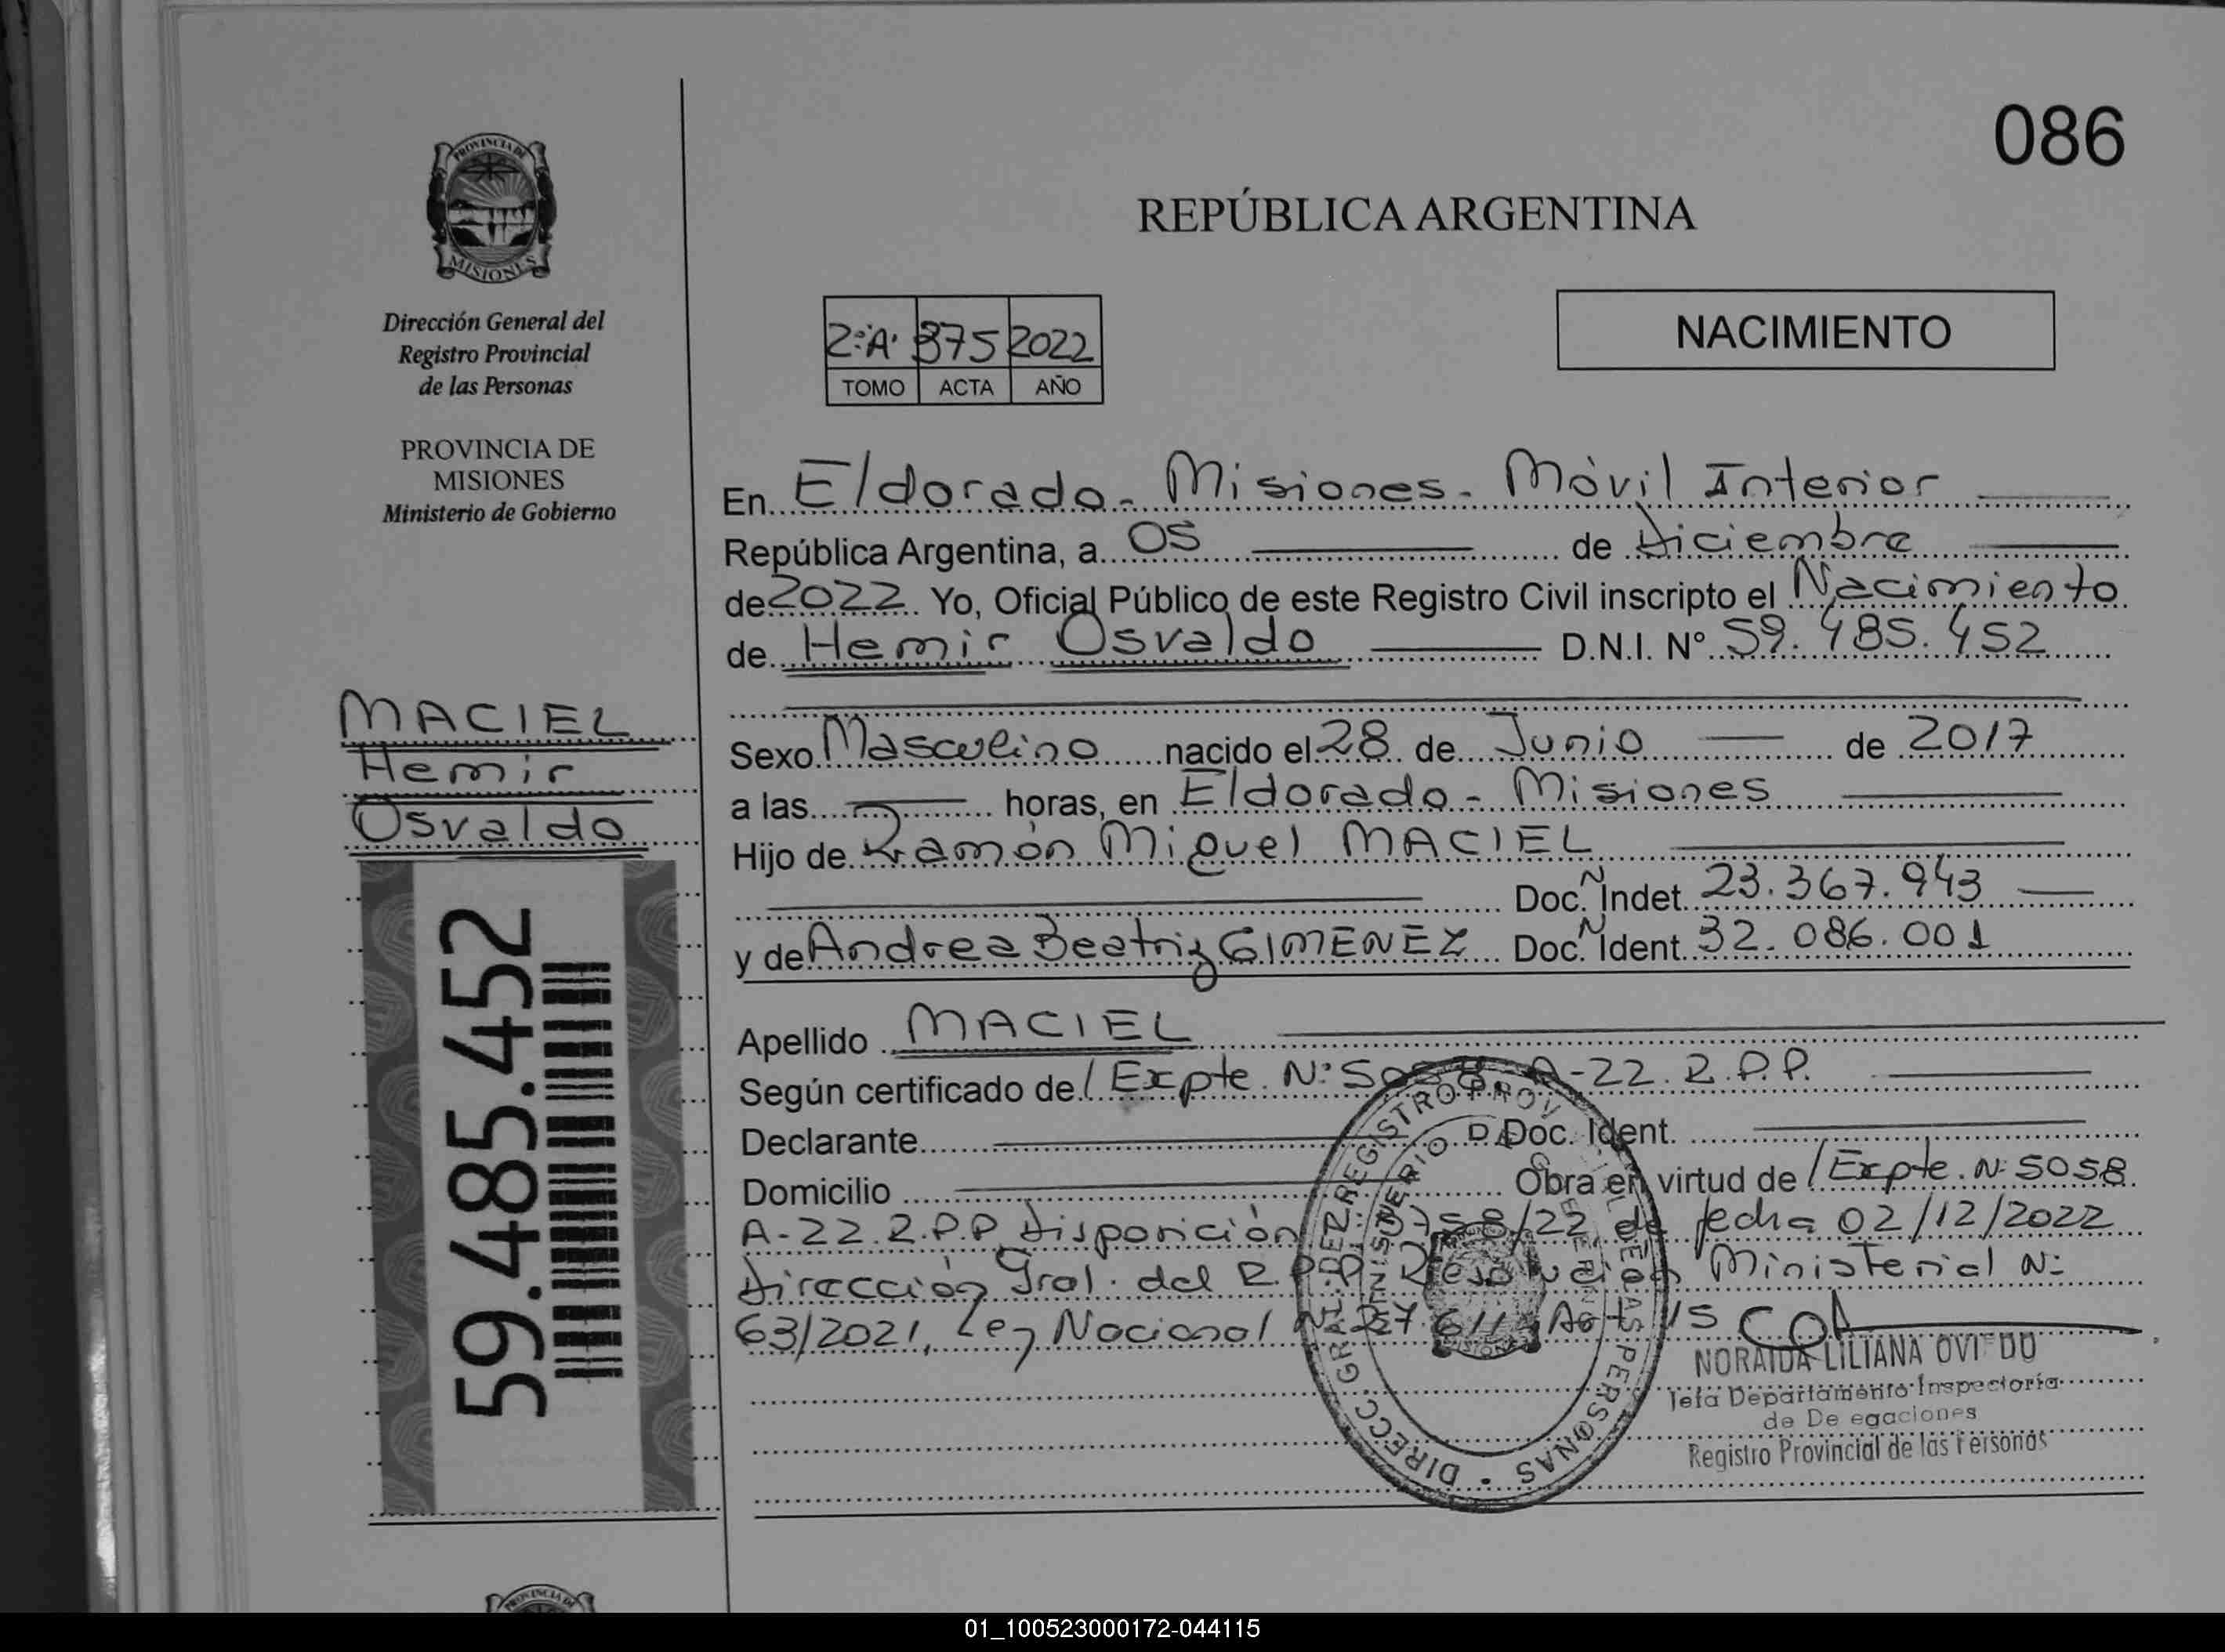 086
PROVINCIA DE
MISIONES
REPÚBLICA ARGENTINA
Dirección General del
Registro Provincial
de las Personas
PROVINCIA DE
MISIONES
Ministerio de Gobierno
2º"A" 375 2022
TOMO ACTA AÑO
NACIMIENTO
En Eldorado - Misiones - Móvil Interior
República Argentina, a 05 de Diciembre
de 2022. Yo, Oficial Público de este Registro Civil inscripto el Nacimiento
de Hemir Osvaldo D.N.I. Nº 59.485.452
MACIEL
Hemir
Osvaldo
59.485.452
Sexo Masculino nacido el 28 de Junio de 2017
a las horas, en Eldorado - Misiones
Hijo de Ramón Miguel MACIEL
Doc. N Indet. 23.367.943
y de Andrea Beatriz GIMENEZ Doc. N Ident. 32.086.001
Apellido MACIEL
Según certificado de / Expte. Nº 5058-A-22.R.P.P.
Declarante Doc. Ident.
Domicilio Obra en virtud de / Expte. Nº 5058
A-22.R.P.P. Disposición /22 de fecha 02/12/2022
Dirección Gral. del R.P.P. Resolución Ministerial Nº
63/2021, Ley Nacional Nº 27.611 Art 15
DIRECC. GRAL. DEL REGISTRO PROV. DE LAS PERSONAS
NORAIDA LILIANA OVIEDO
Jefa Departamento Inspectoría
de Delegaciones
Registro Provincial de las Personas
01_100523000172-044115